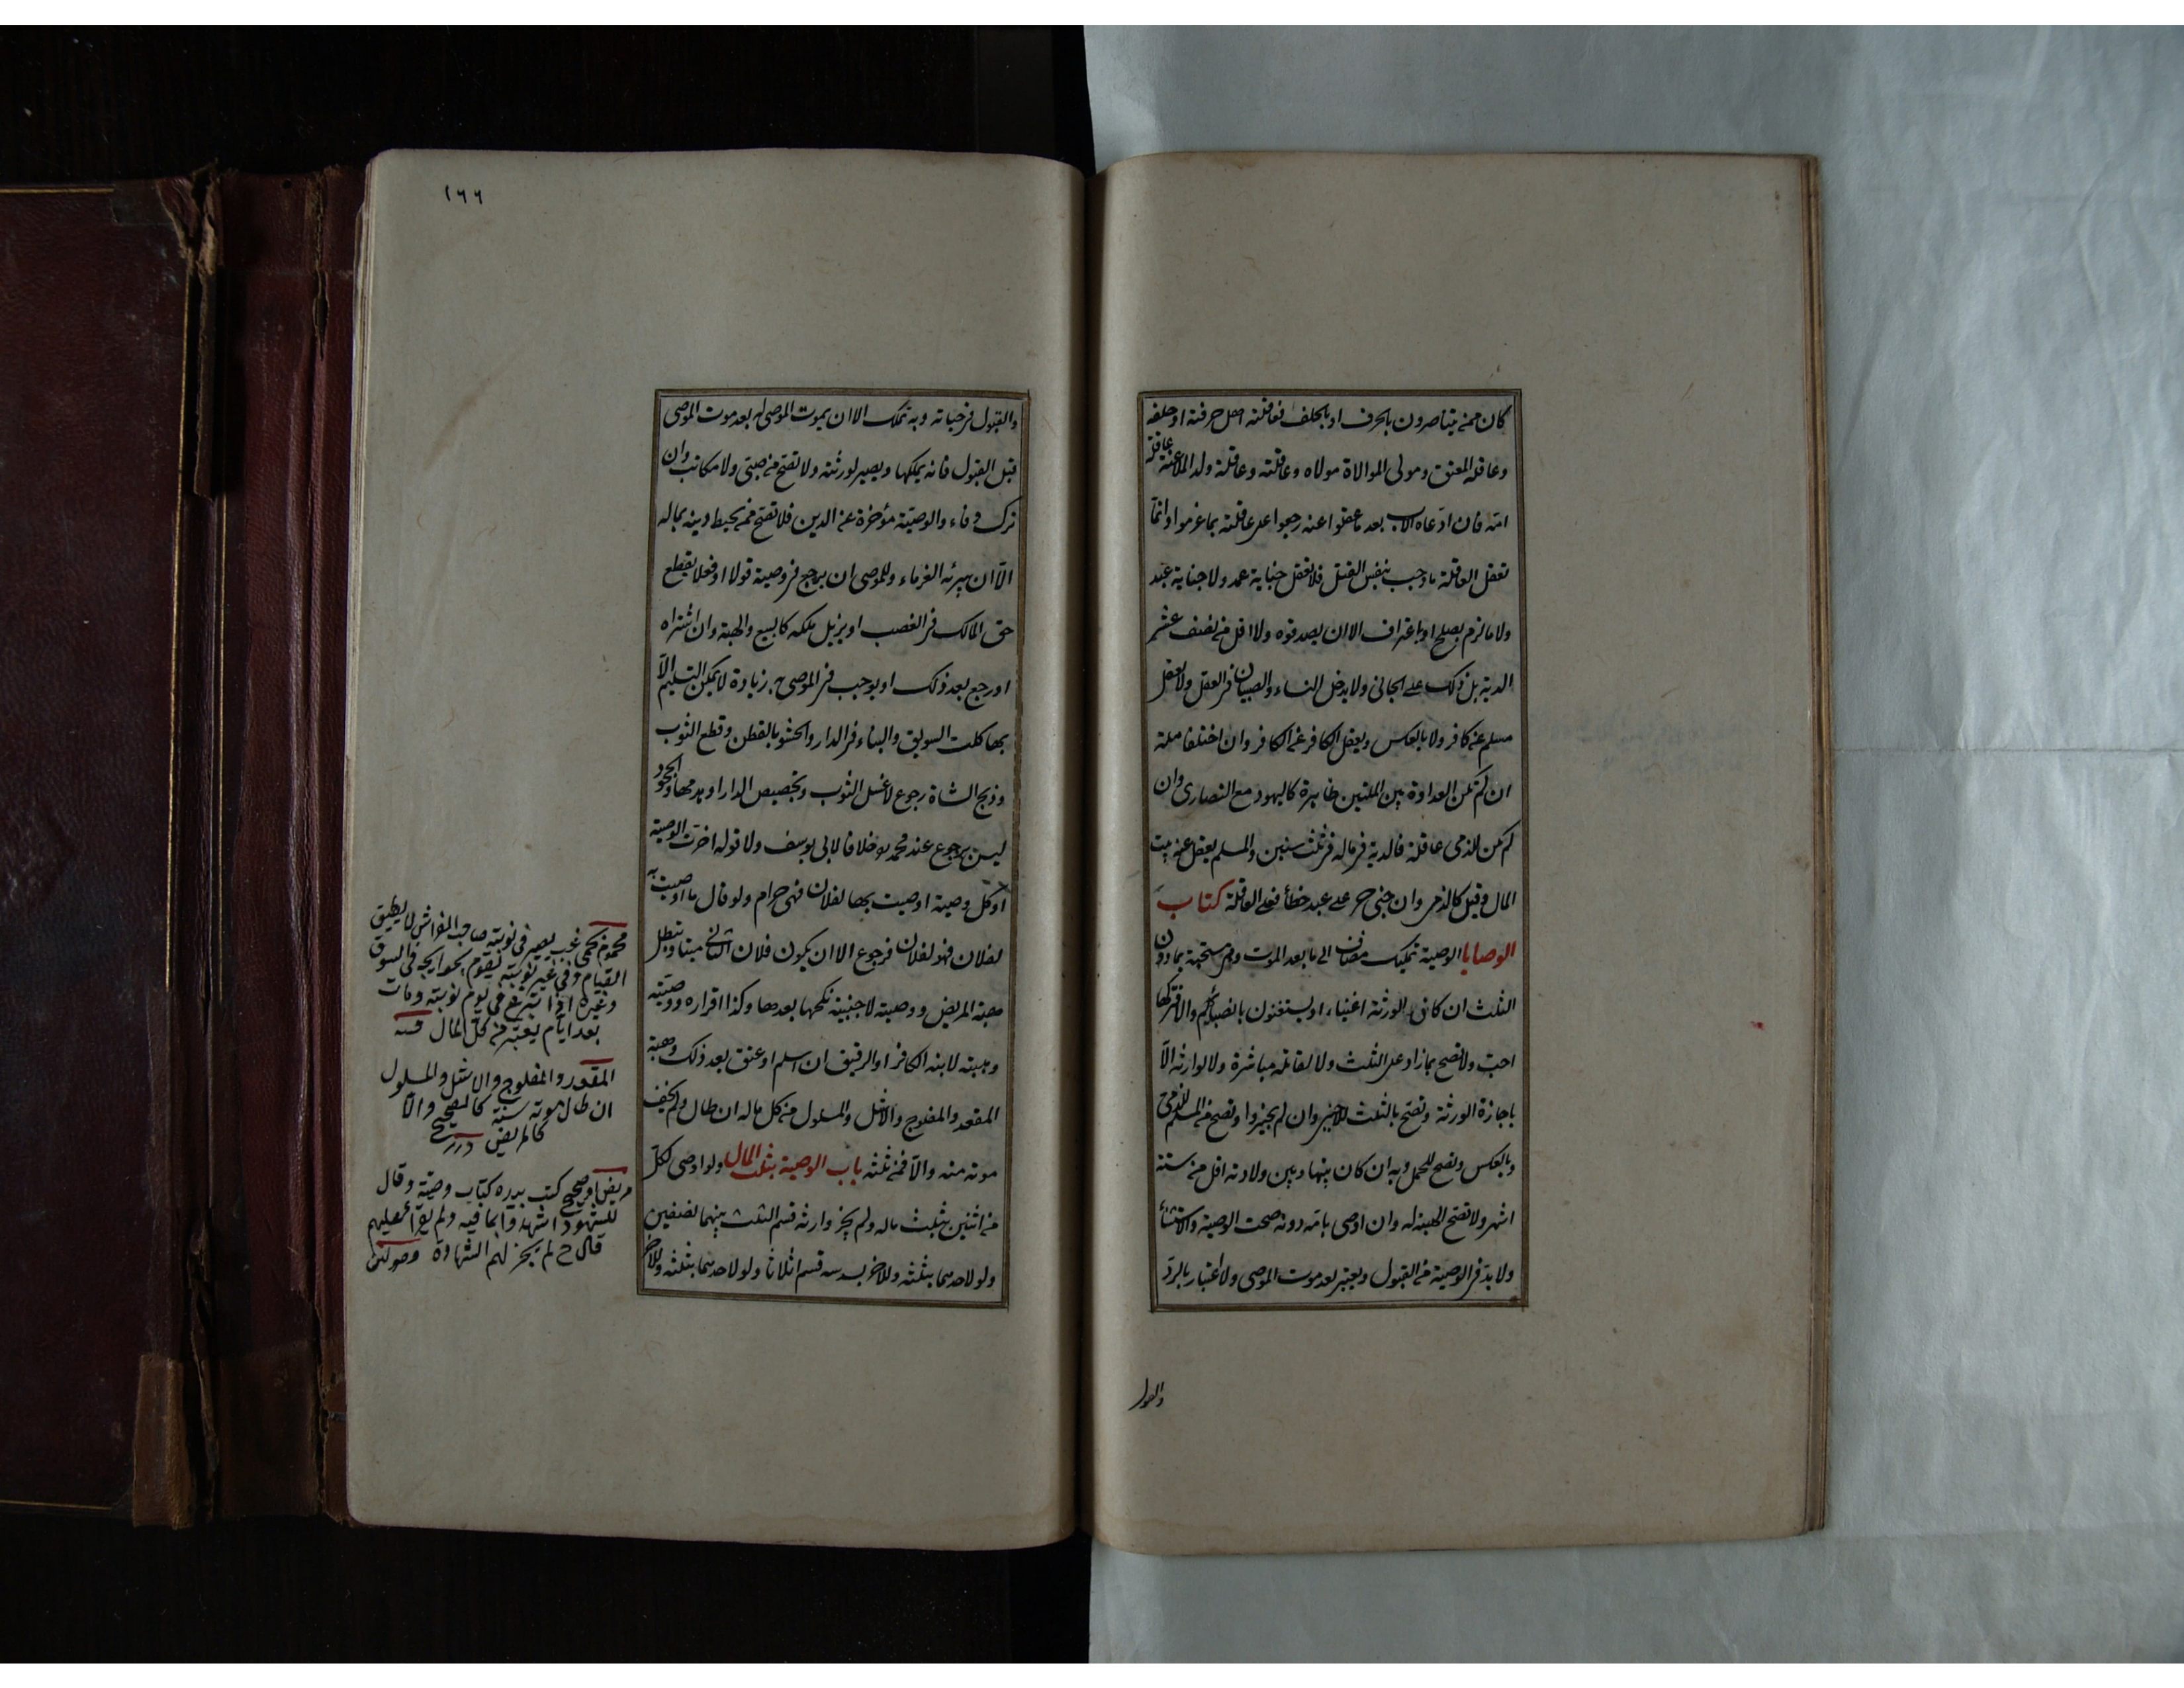 كان ممن يتناصرون بالحرف او بالحلف فعاقلته اهل حرفته او حلفه
وعاقلة المعتق ومولى الموالاة مولاه وعاقلته وعاقلة ولد الملاعنة عاقلة
امه فان ادعاه الاب بعد ما عقلوا عنه رجعوا على عاقلته بما غرموا وانما
تعقل العاقلة ما وجب بنفس القتل فلا تعقل جناية عمد ولا جناية عبد
ولا ما لزم بصلح او باعتراف الا ان يصدقوه ولا اقل من نصف عشر
الدية بل ذلك على الجانى ولا يدخل النساء والصبيان فى العقل ولا يعقل
مسلم عن كافر ولا بالعكس ويعقل الكافر عن الكافر وان اختلفا ملة
ان لم تكن العداوة بين الملتين ظاهرة كاليهود مع النصارى وان
لم تكن للذمى عاقلة فالدية فى ماله فى ثلث سنين والمسلم يعقل عنه بيت
المال وقيل كالذمى وان جنى حر على عبد خطأ فعلى العاقلة كتاب
الوصايا الوصية تمليك مضاف الى ما بعد الموت وهى مستحبة بما دون
الثلث ان كان الورثة اغنياء او يستغنون بانصبائهم والا فتركها
احب ولا تصح بما زاد على الثلث ولا لقاتله مباشرة ولا لوارثه الا
باجازة الورثة وتصح بالثلث للاجنبى وان لم يجيزوا وتصح من المسلم للذمى
وبالعكس وتصح للحمل وبه ان كان بينها وبين ولادته اقل من ستة
اشهر ولا تصح الهبة له وان اوصى بامة دونه صحت الوصية والاستثنأ
ولا بد فى الوصية من القبول ويعتبر بعد موت الموصى ولا اعتبار بالرد
والقبول
١٦٦
والقبول فى حياته وبه تملك الا ان يموت الموصى له بعد موت الموصى
قبل القبول فانه يملكها ويصير لورثته ولا تصح من صبى ولا مكاتب وان
ترك وفاء والوصية مؤخرة عن الدين فلا تصح ممن يحيط دينه بماله
الا ان يبرئه الغرماء وللموصى ان يرجع فى وصيته قولا او فعلا يقطع
حق المالك فى الغصب او يزيل ملكه كالبيع والهبة وان اشتراه
او رجع بعد ذلك او يوجب فى الموصى به زيادة لا يمكن التسليم الا
بها كلت السويق والبناء فى الدار والحشو بالقطن وقطع الثوب
وذبح الشاة رجوع لا غسل الثوب وتجصيص الدار او هدمها والجحود
ليس برجوع عند محمد خلافا لابى يوسف ولا قوله اخرت الوصية
او كل وصية اوصيت بها لفلان فهى حرام ولو قال ما اوصيت به
لفلان فهو لفلان فرجوع الا ان يكون فلان الثانى ميتا وتبطل
هبة المريض ووصيته لاجنبية نكحها بعدها وكذا اقراره ووصيته
وهبته لابنه الكافر او الرقيق ان اسلم او عتق بعد ذلك وهبة
المقعد والمفلوج والاشل والمسلول من كل ماله ان طال ولم يخف
موته منه والا فمن ثلثه باب الوصية بثلث المال ولو اوصى لكل
من اثنين بثلث ماله ولم يجز وارثه قسم الثلث بينهما نصفين
ولو لاحدهما بثلثه وللاخر بسدسه قسم اثلاثا ولو لاحدهما بثلثه وللاخر
محموم بحمى غب يصير فى نوبته صاحب الفراش لا يطيق
القيام وفى غير نوبته يقوم بحوايجه فى السوق
وغيره اذا تبرع فى يوم نوبته ومات
بعد ايام يعتبر من كل المال
المقعد والمفلوج والاشل والمسلول
ان طال موته سنة كالصحيح والا
كالمريض درر
مريض او صحيح كتب بيده كتاب وصية وقال
للشهود اشهدوا بما فيه ولم يقرأ عليهم
قال ح لم يجز لهم الشهادة